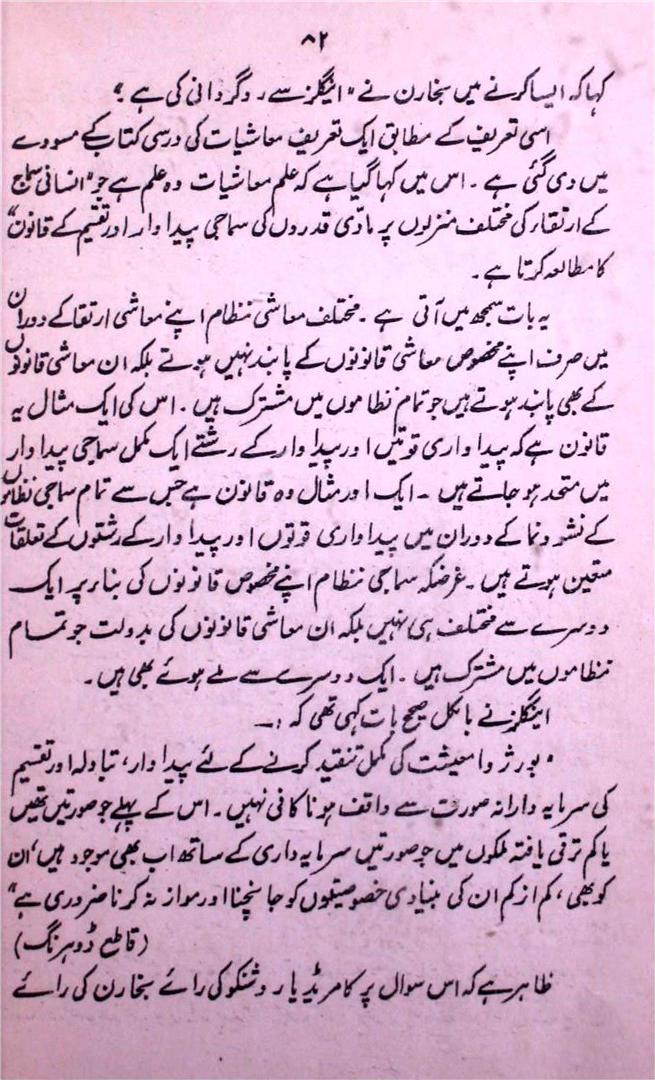 ۸۲
کہا کہ ایسا کرنے میں بخارن نے "اینگلز سے روگردانی کی ہے"۔
اسی تعریف کے مطابق ایک تعریف معاشیات کی درسی کتاب کے مسودے
میں دی گئی ہے ۔ اس میں کہا گیا ہے کہ علم معاشیات وہ علم ہے جو "انسانی سماج
کے ارتقاء کی مختلف منزلوں پر مادّی قدروں کی سماجی پیداوار اور تقسیم کے قانون"
کا مطالعہ کرتا ہے ۔
یہ بات سمجھ میں آتی ہے ۔ مختلف معاشی نظام اپنے معاشی ارتقا کے دوران
میں صرف اپنے مخصوص معاشی قانونوں کے پابند نہیں ہوتے بلکہ ان معاشی قانونوں
کے بھی پابند ہوتے ہیں جو تمام نظاموں میں مشترک ہیں ۔ اس کی ایک مثال یہ
قانون ہے کہ پیداواری قوتیں اور پیداوار کے رشتے ایک مکمل سماجی پیداوار
میں متحد ہو جاتے ہیں ۔ ایک اور مثال وہ قانون ہے جس سے تمام سماجی نظاموں
کے نشوونما کے دوران میں پیداواری قوتوں اور پیداوار کے رشتوں کے تعلقات
متعین ہوتے ہیں ۔ غرضکہ سماجی نظام اپنے مخصوص قانونوں کی بناء پر ایک
دوسرے سے مختلف ہی نہیں بلکہ ان معاشی قانونوں کی بدولت جو تمام
نظاموں میں مشترک ہیں ۔ ایک دوسرے سے ملے ہوئے بھی ہیں ۔
اینگلز نے بالکل صحیح بات کہی تھی کہ :۔
"بورژوا معیشت کی مکمل تنقید کرنے کے لئے پیداوار، تبادلہ اور تقسیم
کی سرمایہ دارانہ صورت سے واقف ہونا کافی نہیں ۔ اس کے پہلے جو صورتیں تھیں
یا کم ترقی یافتہ ملکوں میں جو صورتیں سرمایہ داری کے ساتھ اب بھی موجود ہیں، ان
کو بھی، کم از کم ان کی بنیادی خصوصیتوں کو جانچنا اور موازنہ کرنا ضروری ہے"
(قاطع ڈوہرنگ)
ظاہر ہے کہ اس سوال پر کامریڈ یاروشنکو کی رائے بخارن کی رائے